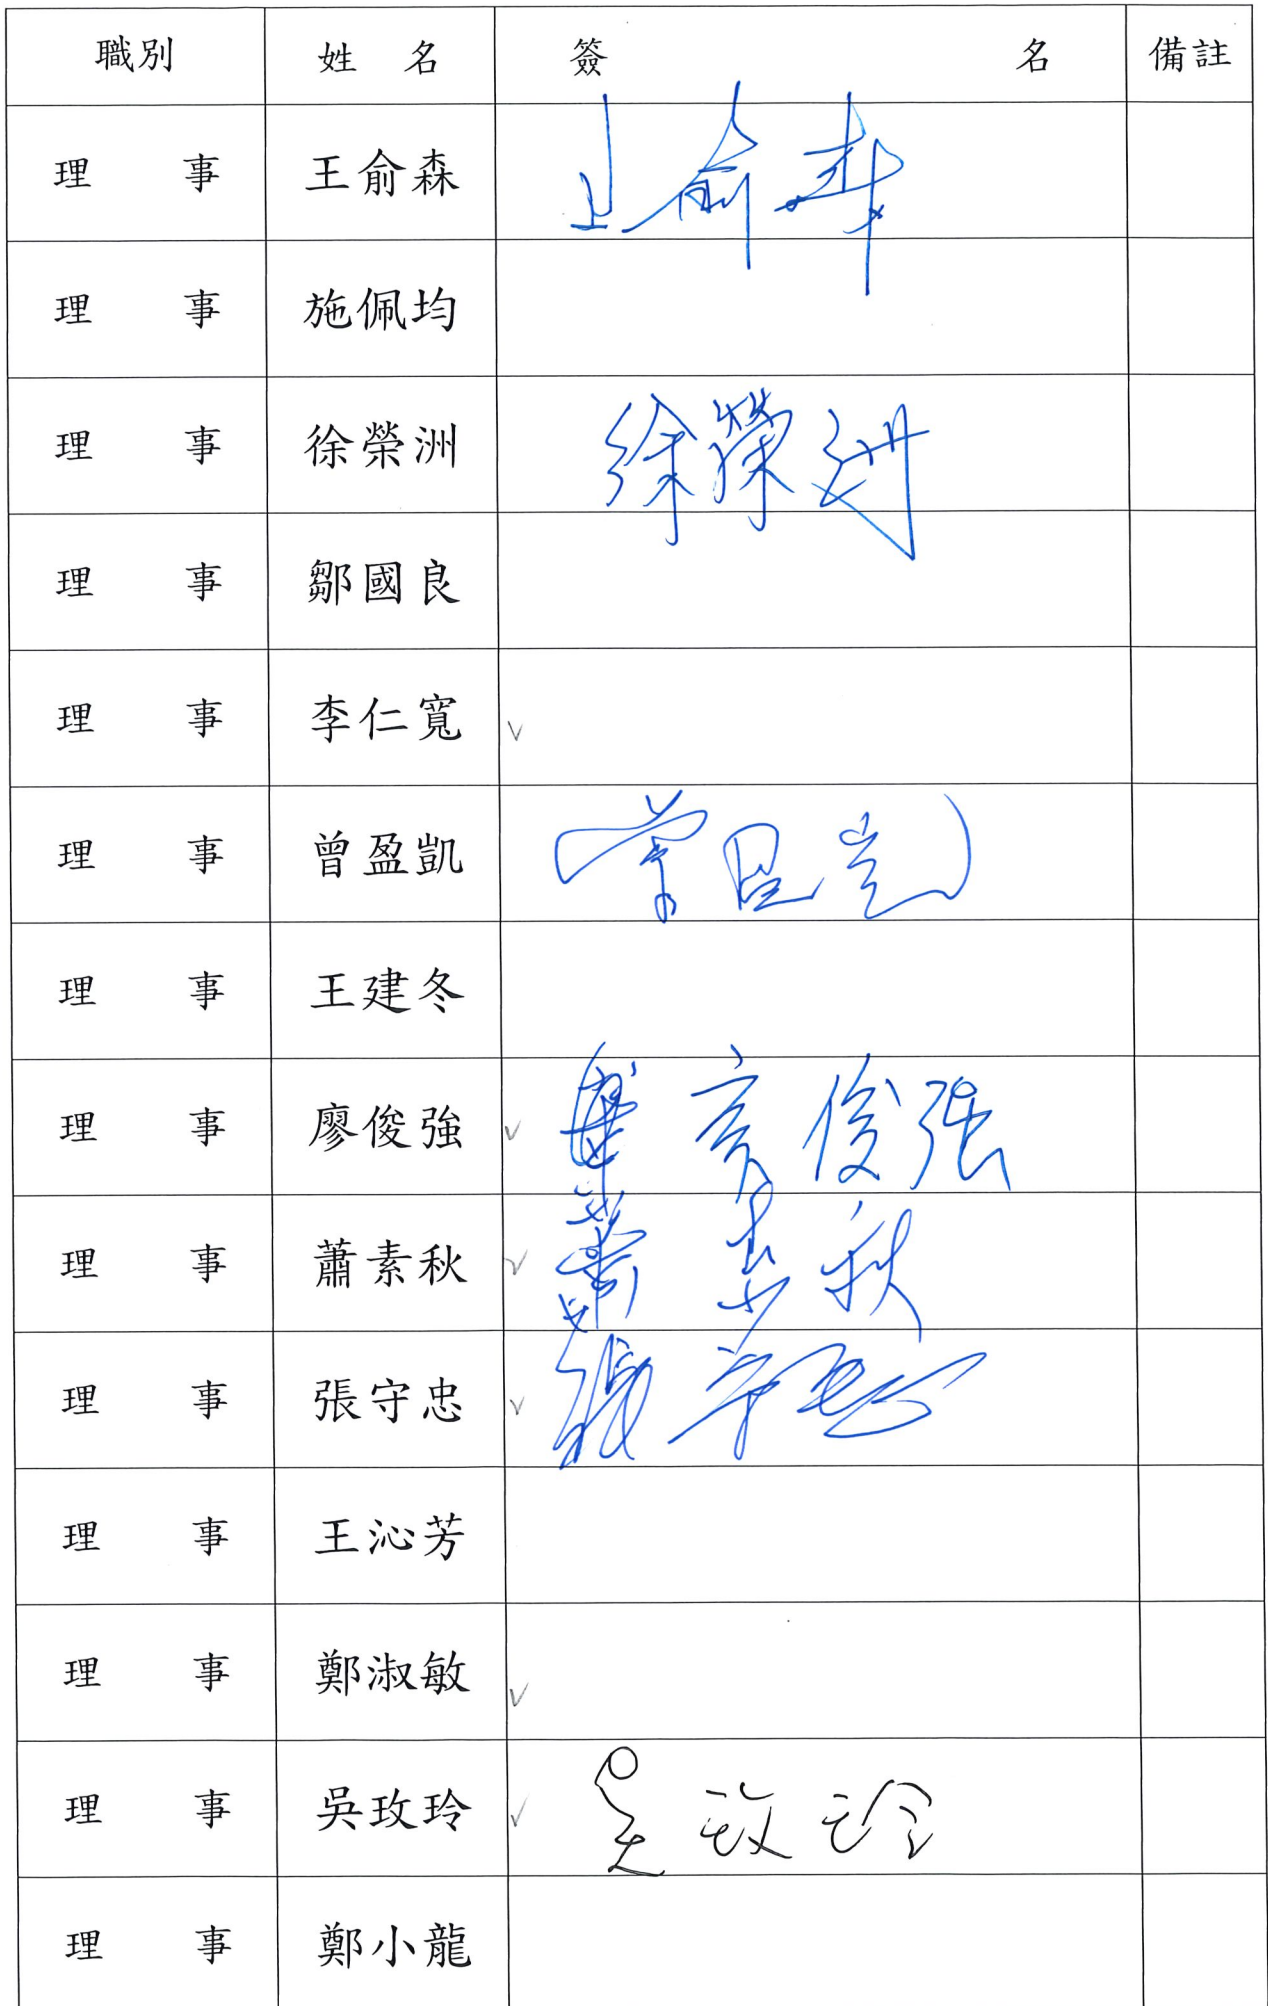 職別 姓 名 簽 名 備註
理 事 王俞森 王俞森
理 事 施佩均
理 事 徐榮洲 徐榮洲
理 事 鄒國良
理 事 李仁寬 ✓
理 事 曾盈凱 曾盈凱
理 事 王建冬
理 事 廖俊強 ✓ 廖俊強
理 事 蕭素秋 ✓ 蕭素秋
理 事 張守忠 ✓ 張守忠
理 事 王沁芳
理 事 鄭淑敏 ✓
理 事 吳玫玲 ✓ 吳玫玲
理 事 鄭小龍